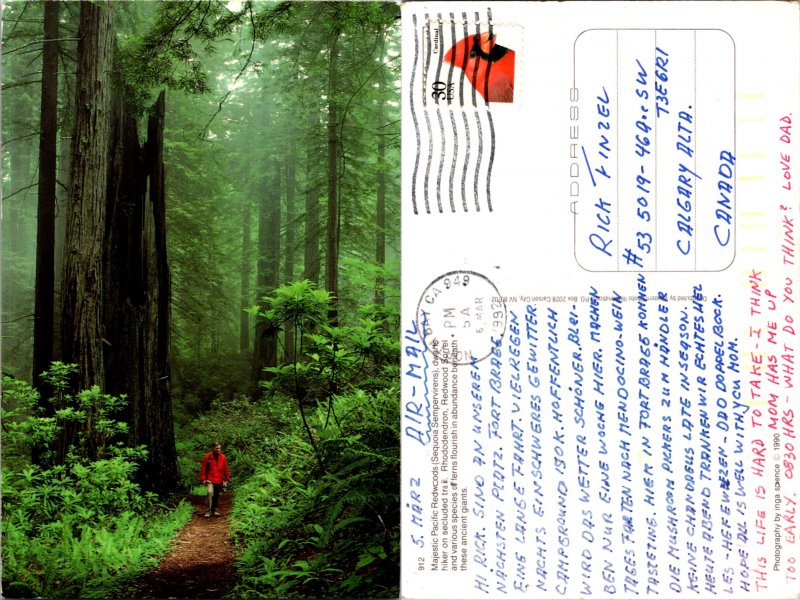 912
Majestic Pacific Redwoods (Sequoia Sempervirens). Tiny
hiker on scented trail. Rhododendron, Redwood Sorrel
and various species of ferns flourish in abundance beneath
these ancient giants.
Cardinal
30
USA
CA 949
PM
5 MAR
1992
5. MÄRZ AIR-MAIL
HI RICK. SIND AN UNSEREM
NÄCHSTEN PLATZ. FORT BRAGG.
EINE LANGE FAHRT. E. REGEN
NACHTS EIN SCHWERES GEWITTER.
CAMPGROUND IST O.K. HOFFENTLICH
WIRD DAS WETTER SCHÖNER. BLEI-
BEN NUR EINE WOCHE HIER. MACHEN
TAGES FARTEN NACH MENDOCINO-WEIN
TASTEING. HIER IN FORT BRAGG KOMMEN
DIE MUSHROOM PICKERS ZUM HÄNDLER
KEINE CHANDRELLS LATE IN SEASON.
HEUTE ABEND TRANKEN WIR ECHTES HEL
LES - HEFEWEIZEN - UND DOPPELBOCK.
HOPE ALL IS WELL WITH YOU MOM.
THIS LIFE IS HARD TO TAKE - I THINK
MOM HAS ME UP
TOO EARLY. 0830 HRS - WHAT DO YOU THINK? LOVE DAD.
Photography by inga spence © 1990
ADDRESS
RICK FINZEL
# 53 5019 - 46 Ave SW
T3E6R1
CALGARY ALTA.
CANADA